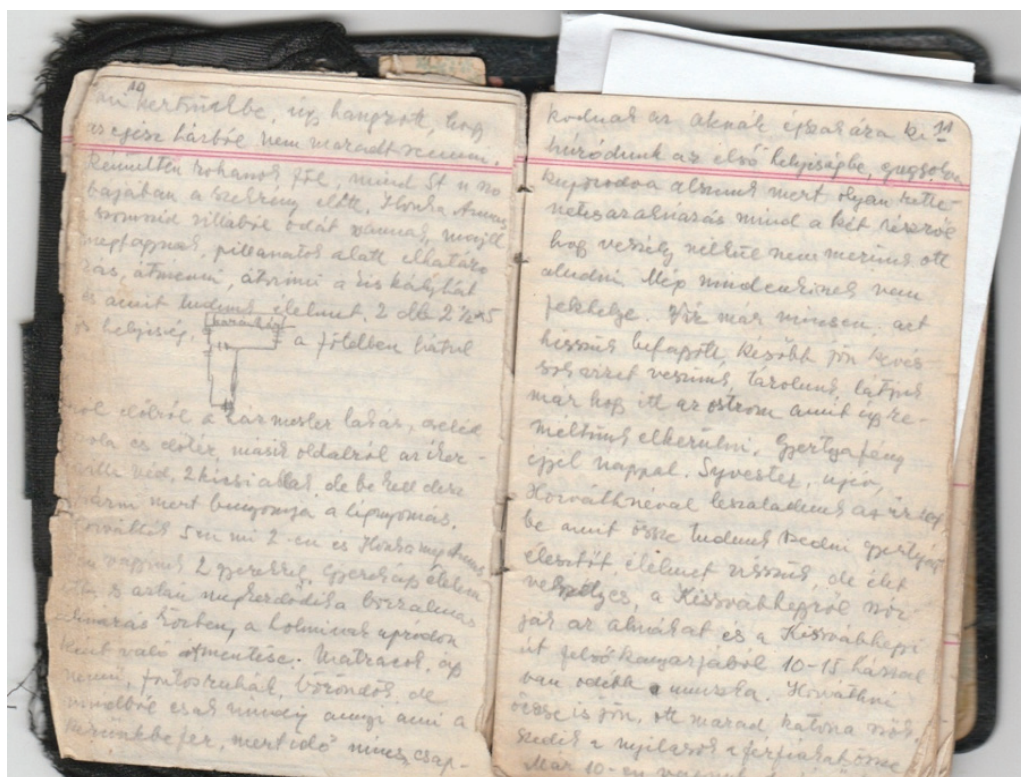 10
kertünkbe, úgy hangzott, hogy
az egész házból nem maradt semmi.
Rémülten rohanok föl, mind St n szo
bájában a szekrény előtt. Honka Annus
a szomszéd villából odát vannak, majd
megkapnak, pillanatok alatt elhatáro
zás, átmenni, átvinni a kis kályhát
és amit tudunk élelmet. 2 db 2 1/2 x 5
ös helyiség, a földben hátul
ról előlről a házmester lakás, cseléd
szoba és előtér, másik oldalról az iker-
villa véd, 2 kicsi ablak, de be kell desz
kázni mert benyomja a légnyomás.
Horváthék 5en mi 2-en és Honka Annus
vagyunk 2 gyerekkel,
és aztán megkezdődik a borzalmas
aknázás közben, a holminak apródon
ként való átmentése. Matracok, ágy
nemű, fontos ruhák, bőröndök, de
mindből csak mindig annyi ami a
kezünkbe fér, mert idő nincs, csap-
kodnak az aknák éjszakára ki
11
húzódunk az első helyiségbe, guggolva
kuporodva alszunk mert olyan rette-
netes az aknázás mind a két részről
hogy veszély nélkül nem merünk ott
aludni. Még mindenkinek van
fekhelye. Víz már nincsen, azt
hisszük befagyott, később jön kevés
sok vizet veszünk, tárolunk, látjuk
már hogy itt az ostrom amit úgy re-
méltünk elkerülni, gyertyafény
éjjel nappal. Sylvester, újév,
Horváthnéval leszaladunk az
be amit össze tudunk szedni gyertyát
élesztőt élelmet viszünk, de élet
veszélyes, a Kissvábhegyről szór
ják az aknákat és a Kissvábhegyi
út felső kanyarjából 10-15 házzal
van odébb a muszka. Horváthné
öccse is jön, ott marad katona szök,
szedik a nyilasok a férfiakat össze
Már 10-en